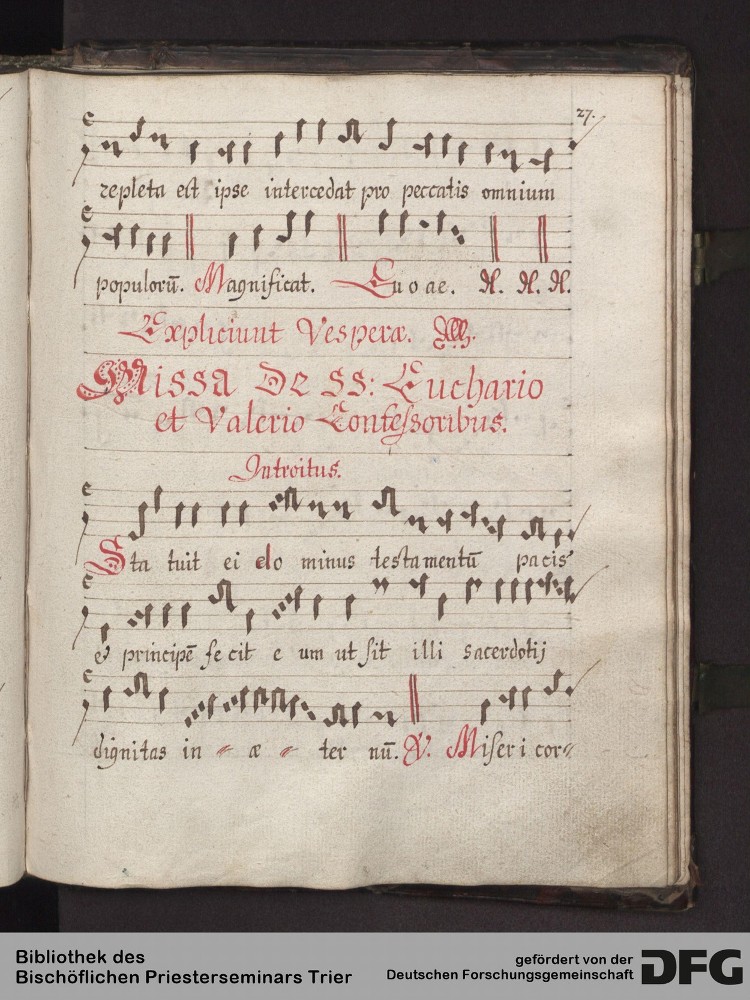 27.
repleta est ipse intercedat pro peccatis omnium
populorū. Magnificat. Euoae.
Expliciunt Vesperæ.
Missa De SS: Euchario
et Valerio Confessoribus.
Introitus.
Sta tuit ei do minus testamentū pacis
et principē fe cit e um ut sit illi sacerdotij
dignitas in æ ter nū. V. Miseri cor=
Bibliothek des
Bischöflichen Priesterseminars Trier
gefördert von der
Deutschen Forschungsgemeinschaft
DFG